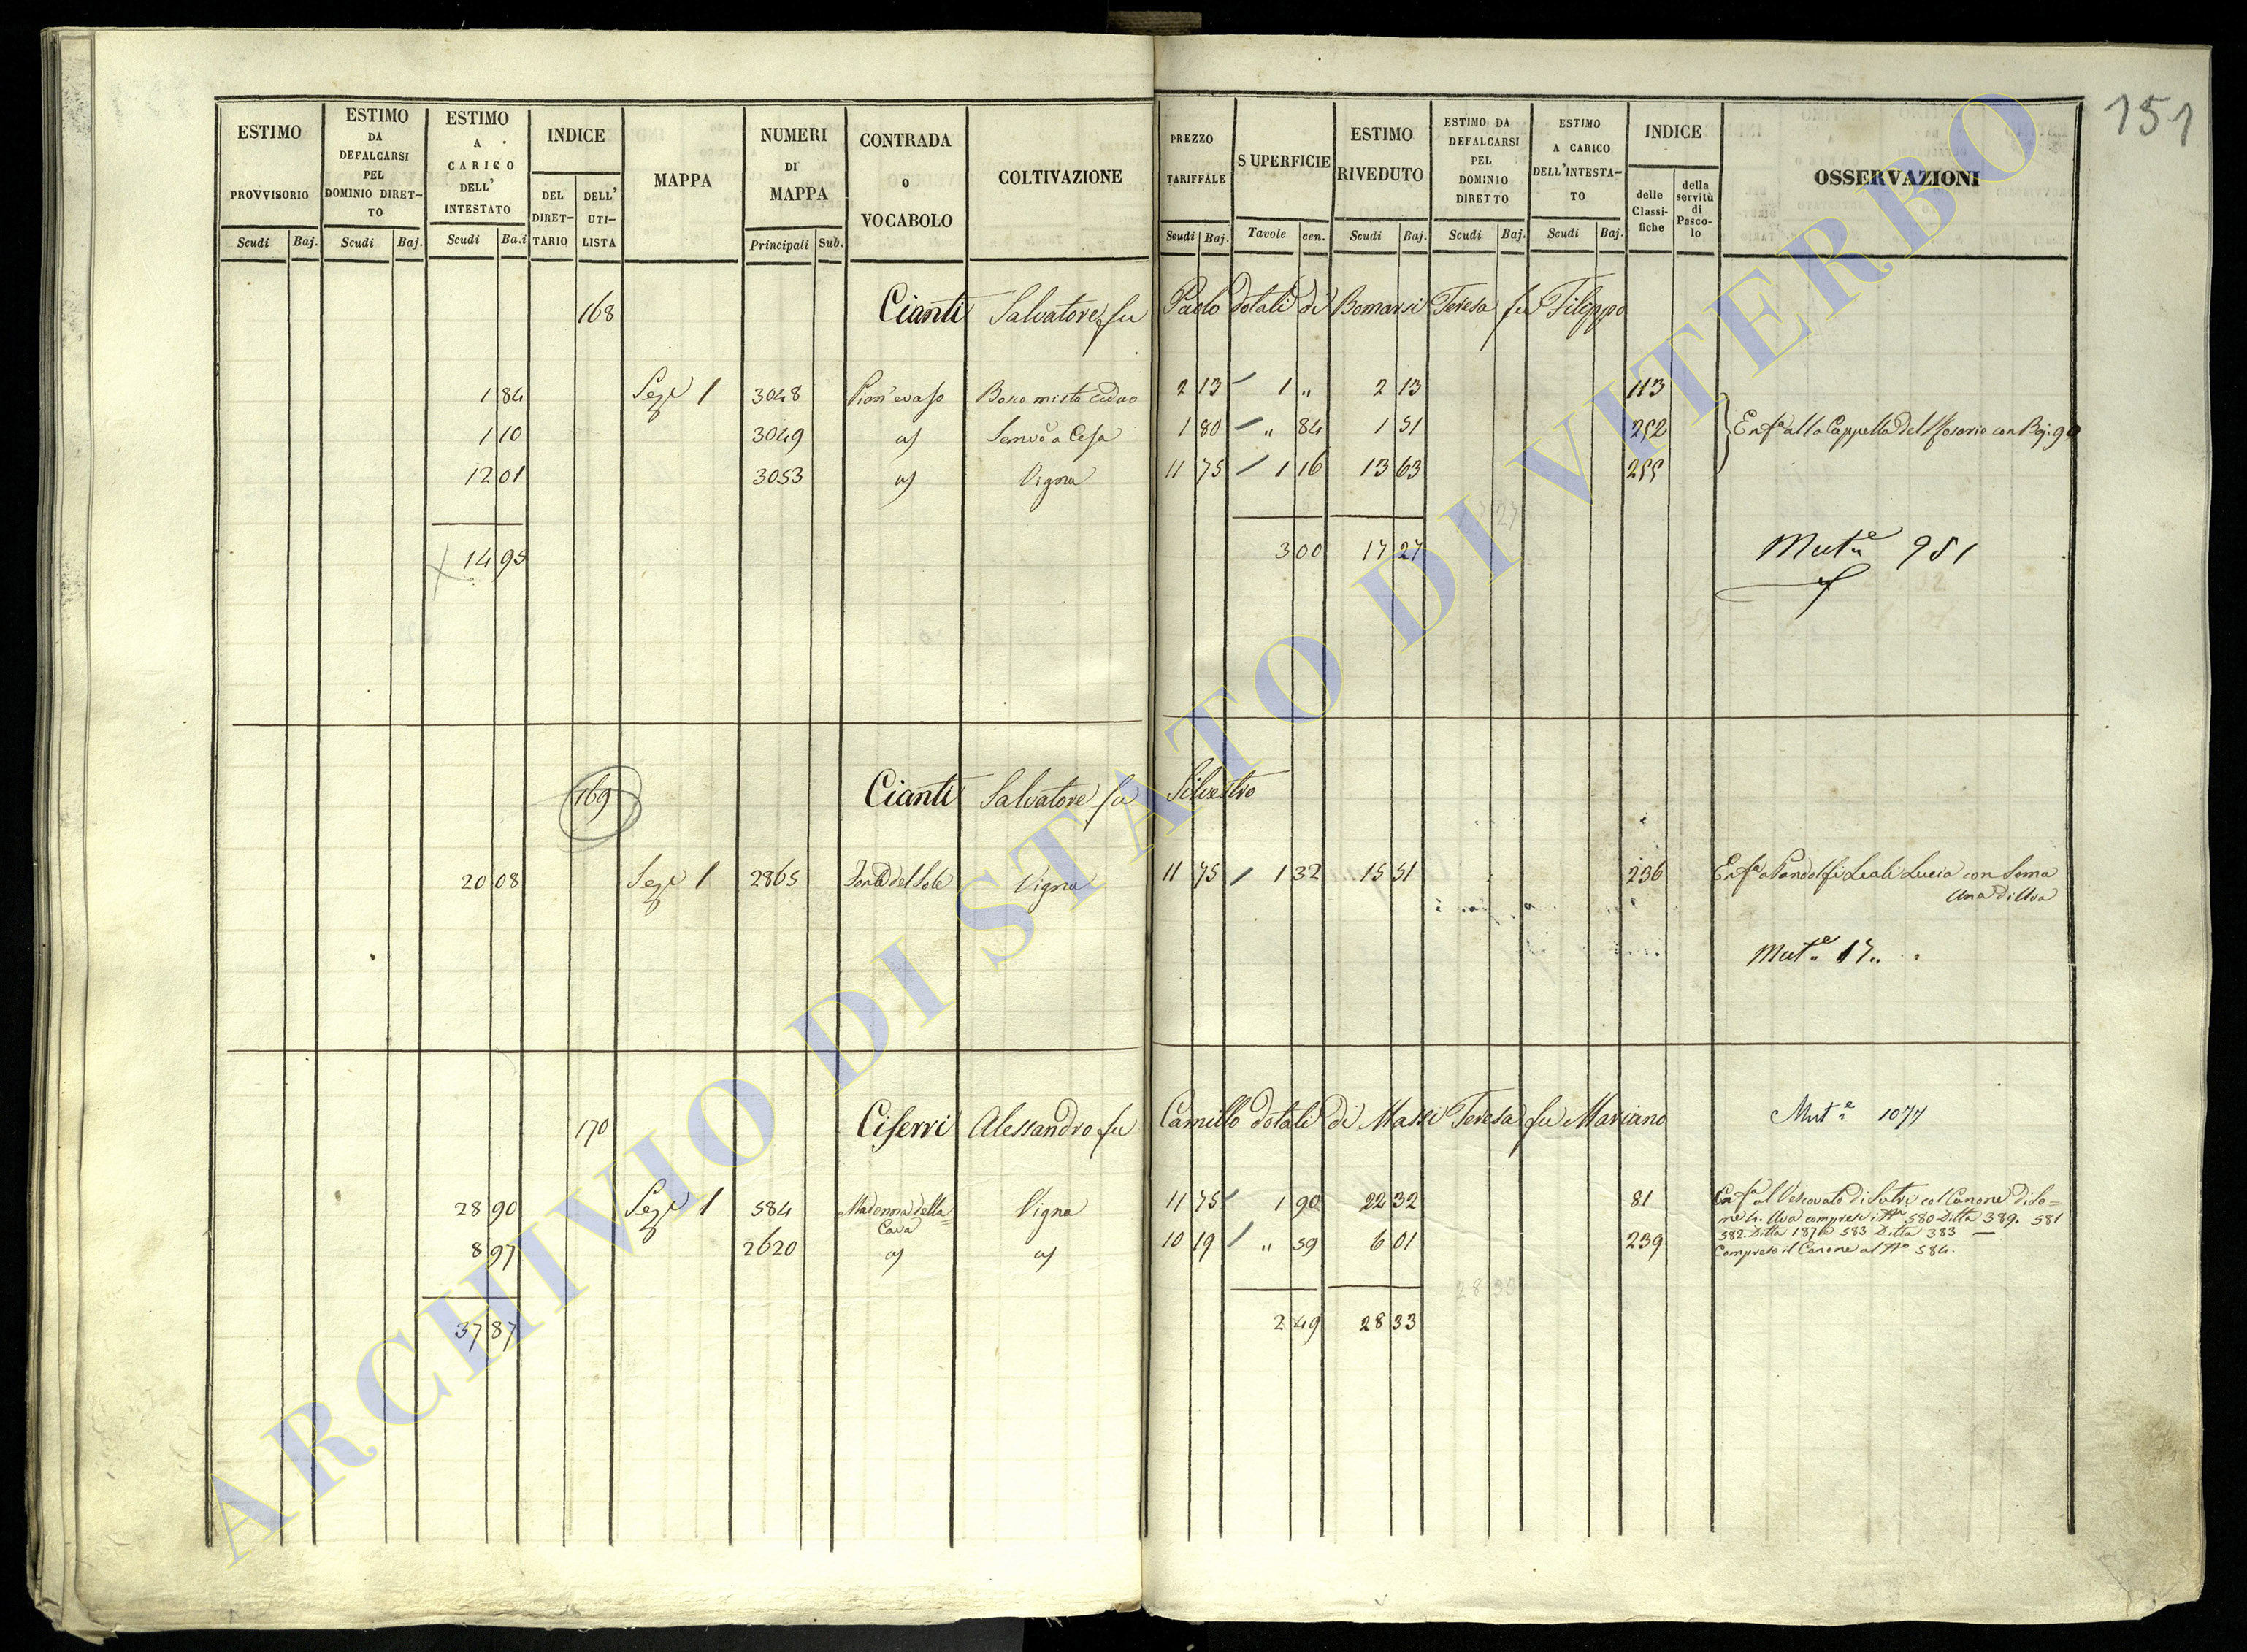 151
ESTIMO PROVVISORIO
ESTIMO DA DEFALCARSI PEL DOMINIO DIRET-TO
ESTIMO A CARICO DELL' INTESTATO
INDICE
DEL DIRET-TARIO
DELL' UTI-LISTA
MAPPA
NUMERI DI MAPPA
CONTRADA O VOCABOLO
COLTIVAZIONE
PREZZO TARIFFALE
SUPERFICIE
ESTIMO RIVEDUTO
ESTIMO DA DEFALCARSI PEL DOMINIO DIRETTO
ESTIMO A CARICO DELL'INTESTA-TO
INDICE
delle Classi-fiche
della servitù di Pasco-lo
OSSERVAZIONI
Scudi Baj. Scudi Baj. Scudi Ba.i Principali Sub. Scudi Baj. Tavole cen. Scudi Baj. Scudi Baj. Scudi Baj.
168 Cianti Salvatore fu Paolo dotali di Bomarsi Teresa fu Filippo
1 84 Sez.e 1 3048 Bosco misto ceduo 2 13 1 " 2 13 113
1 10 3049 a) 1 80 " 84 1 51 252 Enf.a alla Cappella del Rosario con Baj. 90
12 01 3053 a) Vigna 11 75 1 16 13 63 255
14 95 3 00 17 27 Mut.e 951
169 Cianti Salvatore fu Silvestro
20 08 Sez.e 1 2865 Vigna 11 75 1 32 15 51 236 Enf.a a Pandolfi Leali Lucia con Soma
una di Uva
Mut.e 17
170 Ciferri Alessandro fu Camillo dotali di Massi Teresa fu Mariano Mut.e 1077
28 90 Sez.e 1 584 Madonna della Cava Vigna 11 75 1 90 22 32 81 Enf.a al Vescovato di Sutri col Canone di So=
me 4. Uva compresi i N.ri 580 Ditta 389. 581
8 97 2620 a) a) 10 19 " 59 6 01 239 582. Ditta 187 583 Ditta 383
Compreso il Canone al N.o 584.
37 87 2 49 28 33
ARCHIVIO DI STATO DI VITERBO